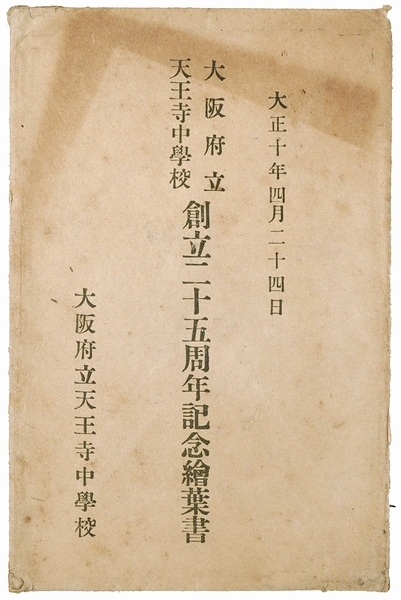 大正十年四月二十四日
大阪府立
天王寺中學校
創立二十五周年記念繪葉書
大阪府立天王寺中學校